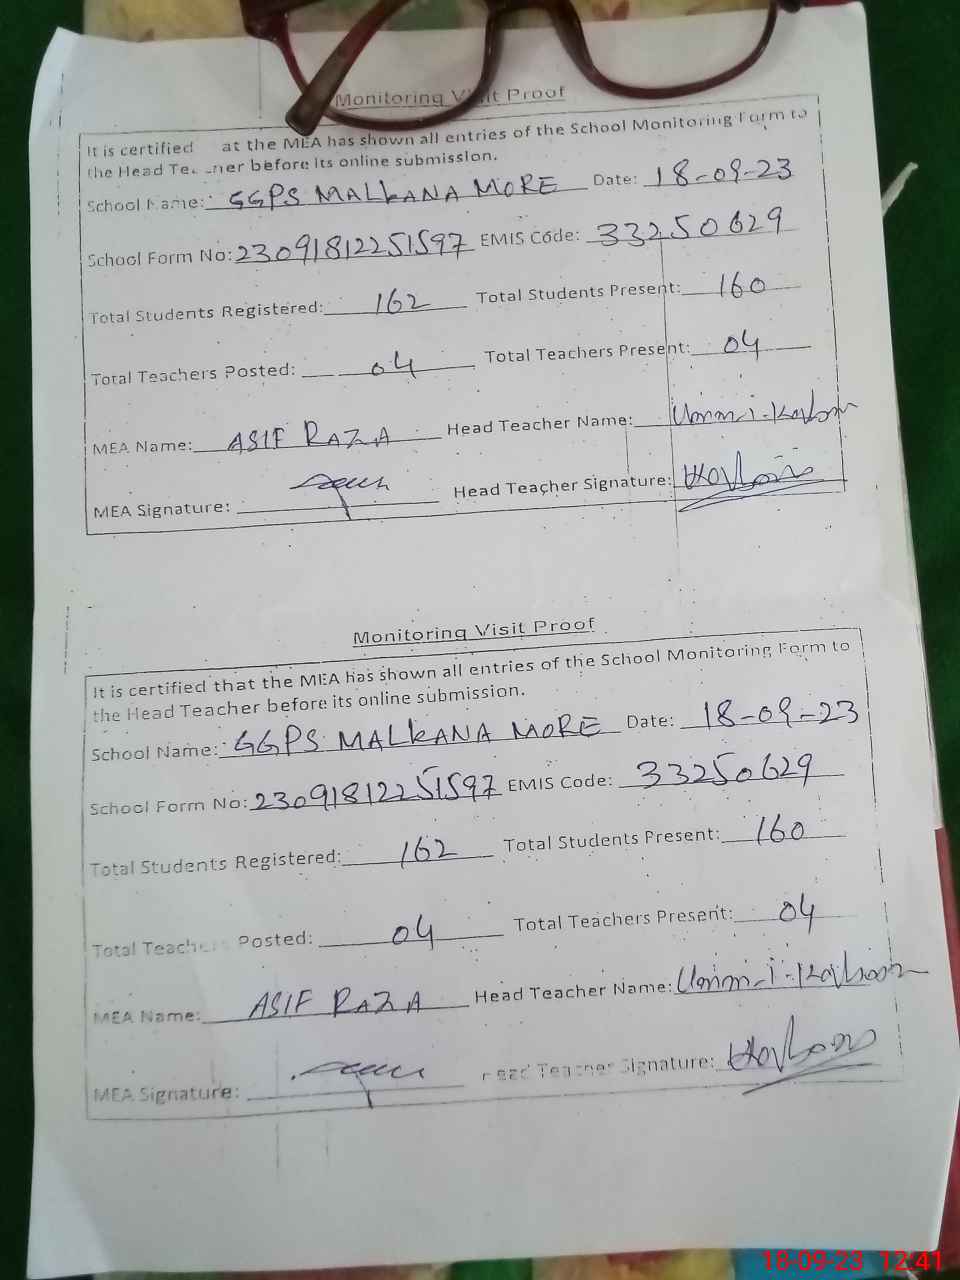 Monitoring Visit Proof
It is certified at the MEA has shown all entries of the School Monitoring Form to
the Head Teacher before its online submission.
School Name: GGPS MALKANA MORE Date: 18-09-23
School Form No: 23091812251597 EMIS Code: 33250629
Total Students Registered: 162 Total Students Present: 160
Total Teachers Posted: 04 Total Teachers Present: 04
MEA Name: ASIF RAZA Head Teacher Name: Umm-i-Kalsoom
MEA Signature: Head Teacher Signature:
Monitoring Visit Proof
It is certified that the MEA has shown all entries of the School Monitoring Form to
the Head Teacher before its online submission.
School Name: GGPS MALKANA MORE Date: 18-09-23
School Form No: 23091812251597 EMIS Code: 33250629
Total Students Registered: 162 Total Students Present: 160
Total Teachers Posted: 04 Total Teachers Present: 04
MEA Name: ASIF RAZA Head Teacher Name: Umm-i-Kalsoom
MEA Signature: Head Teacher Signature:
18-09-23 12:41